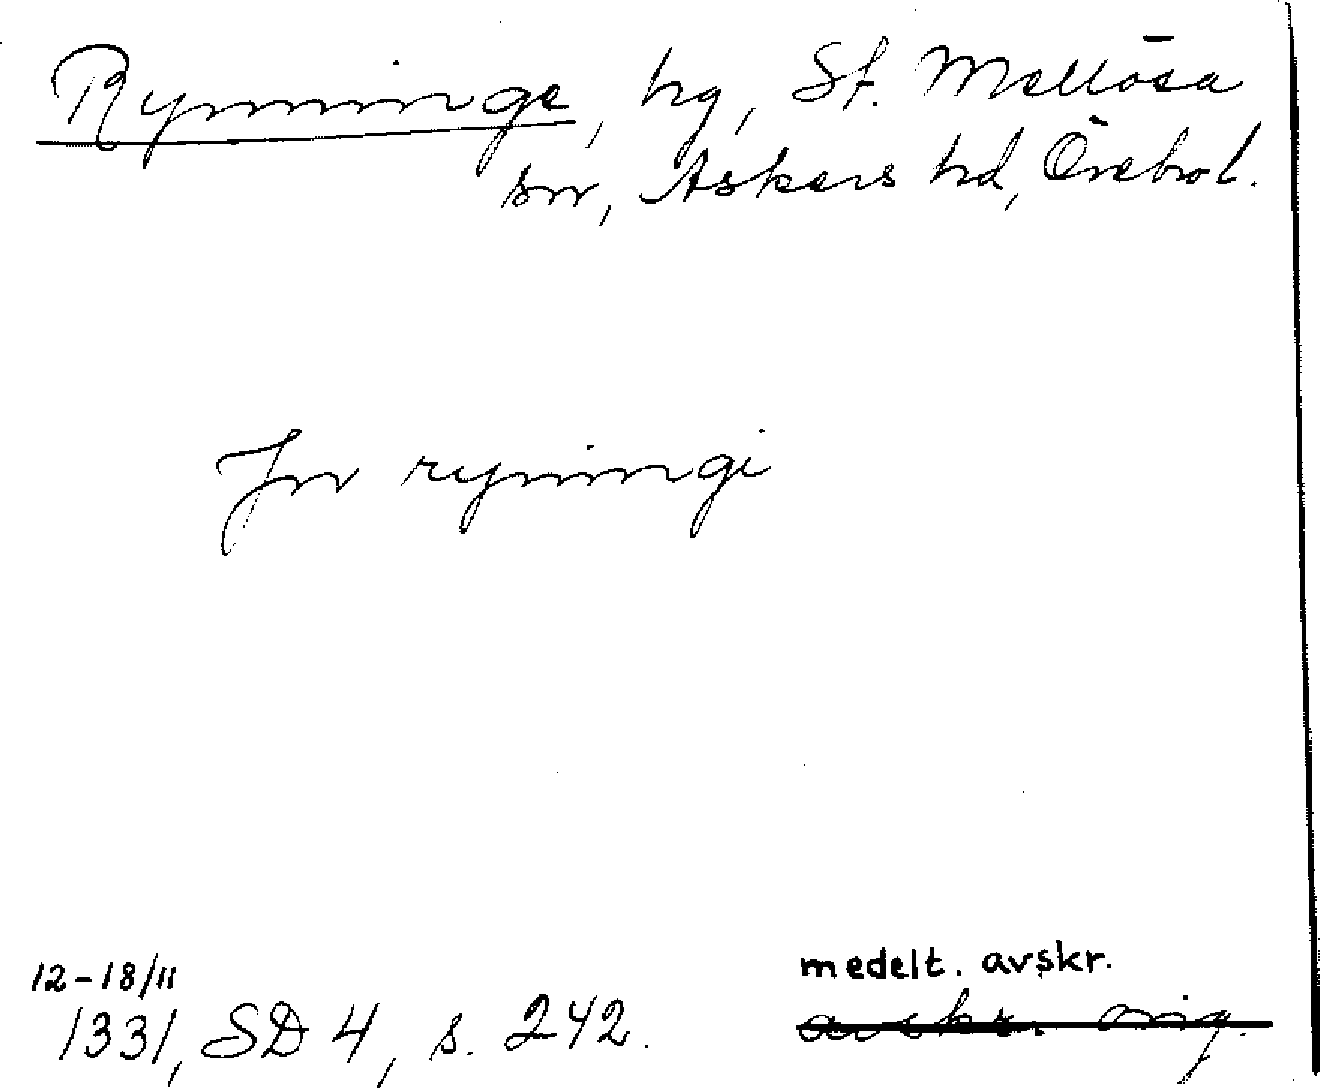 Rynninge, hg, St. Mellösa
sn, Askers hd, Örebro l.
Jn ryningi
12-18/11
medelt. avskr.
1331, SD 4, s. 242.
avskr. orig.